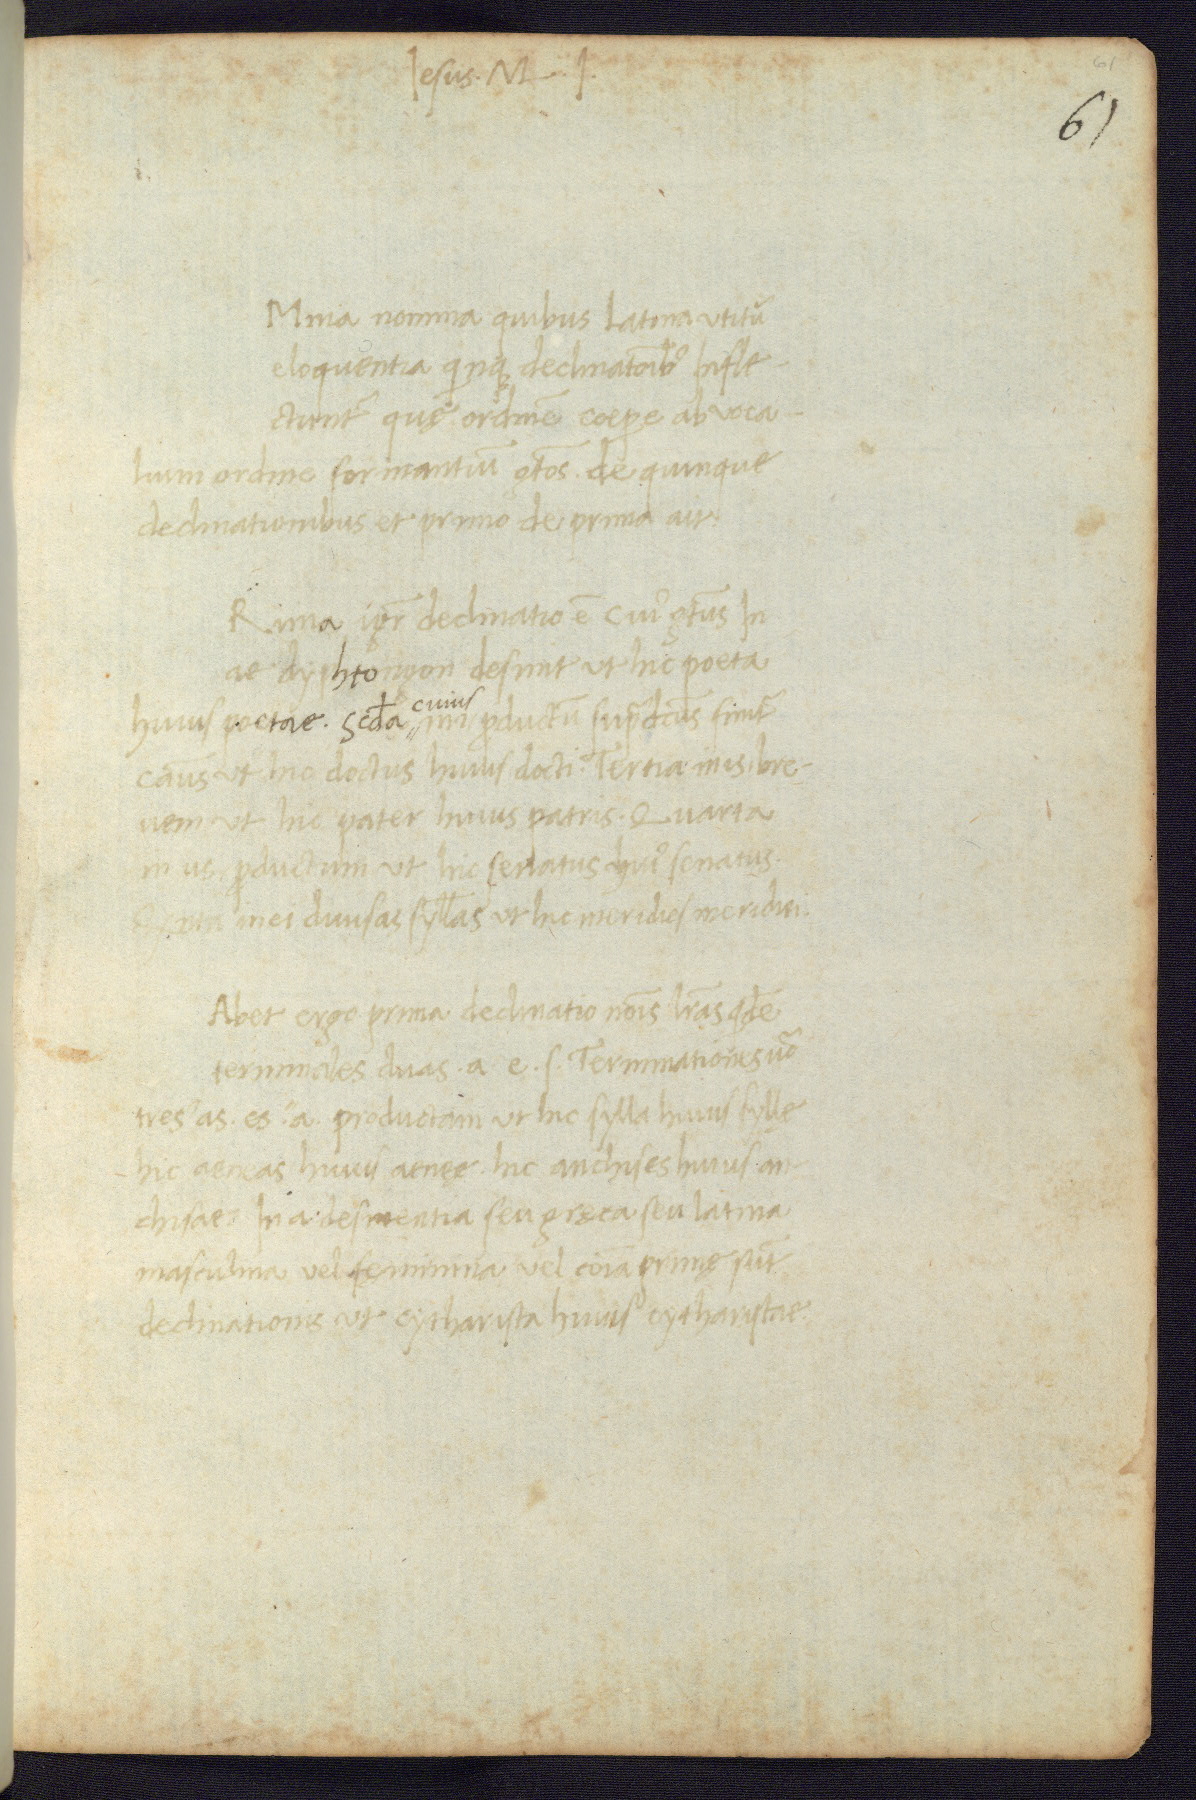 61
Iesus. M. I.
61
Mnia nomina quibus latina utitũ
eloquentia qinq declinatoib⁹ Infle-
ctunt̃ que ordinẽ coepe ab voca-
lium ordine formantiũ gtõs. de quinque
declinationibus et primo de prima ait.
Rima igr̃ declinatio ẽ cui⁹ gtũs In
ae dyphtongon desinit ut hic poeta
huius poetae. Scd̃a cuius in i pductũ supdc̃us finit̃
cãus ut hic doctus huius docti. Tertia in is. bre-
uem ut hic pater huius patris. Quarta
in us pductum ut hic senatus hui⁹ senatus.
Quinta in ei diuisas syll̃as ut hic meridies meridiei.
Abet ergo prima declinatio nõis lr̃as qdẽ
terminales duas. a e. s. Terminationes uº
tres as. es. a. productam ut hic sylla huius sylle
hic aeneas huius aenee. hic anchises huius an-
chisae. In a. desinentia seu greca seu latina
masculina vel feminina vel cõia prime sũt
declinationis ut cytharista huius cytharistae.